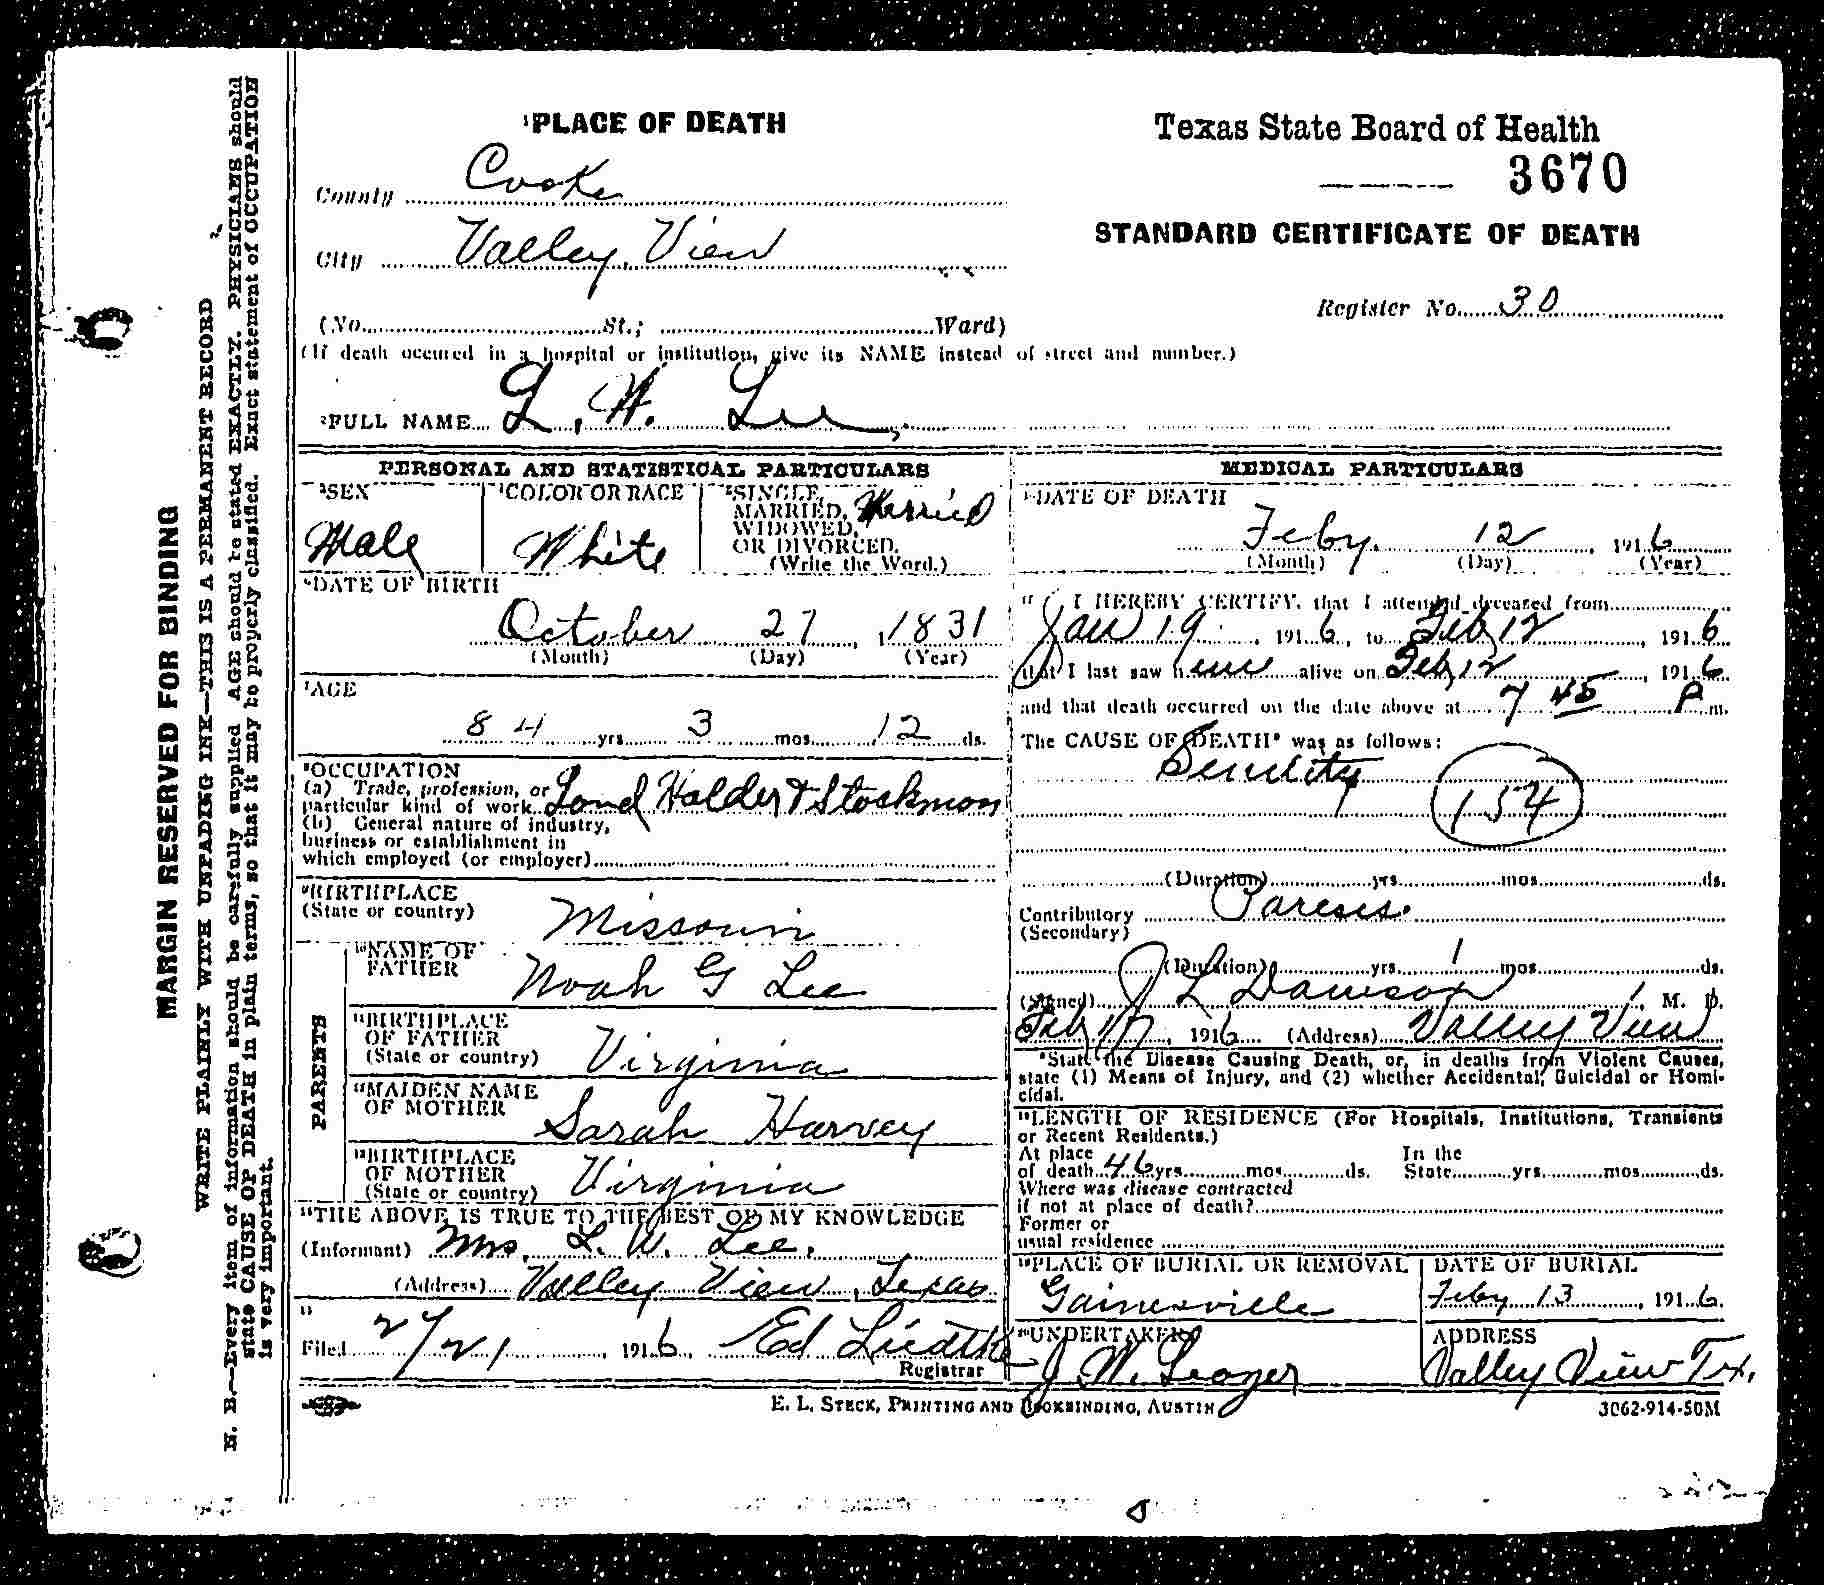 MARGIN RESERVED FOR BINDING
WRITE PLAINLY WITH UNFADING INK—THIS IS A PERMANENT RECORD
N. B.—Every item of information should be carefully supplied. AGE should be stated EXACTLY. PHYSICIANS should
state CAUSE OF DEATH in plain terms, so that it may be properly classified. Exact statement of OCCUPATION
is very important.
1PLACE OF DEATH
County Cooke
City Valley View
(No. St.; Ward)
(If death occured in a hospital or institution, give its NAME instead of street and number.)
Texas State Board of Health
3670
STANDARD CERTIFICATE OF DEATH
Register No. 30
2FULL NAME L. W. Lee
PERSONAL AND STATISTICAL PARTICULARS
3SEX
Male
4COLOR OR RACE
White
5SINGLE,
MARRIED, Married
WIDOWED,
OR DIVORCED.
(Write the Word.)
6DATE OF BIRTH
October 27, 1831
(Month) (Day) (Year)
7AGE
84 yrs. 3 mos. 12 ds.
8OCCUPATION
(a) Trade, profession, or
particular kind of work Land Holder & Stockman
(b) General nature of industry,
business or establishment in
which employed (or employer)
9BIRTHPLACE
(State or country) Missouri
PARENTS
10NAME OF
FATHER Noah G Lee
11BIRTHPLACE
OF FATHER
(State or country) Virginia
12MAIDEN NAME
OF MOTHER Sarah Harvey
13BIRTHPLACE
OF MOTHER
(State or country) Virginia
14THE ABOVE IS TRUE TO THE BEST OF MY KNOWLEDGE
(Informant) Mrs. L. W. Lee.
(Address) Valley View, Texas
15
Filed 2/21, 1916 Ed Liedtke
Registrar
MEDICAL PARTICULARS
16DATE OF DEATH
Feby. 12, 1916
(Month) (Day) (Year)
17 I HEREBY CERTIFY, that I attended deceased from
Jan 19, 1916, to Feb 12, 1916
that I last saw him alive on Feb 12, 1916
and that death occurred on the date above at 7 45 P m.
The CAUSE OF DEATH* was as follows:
Senility
154
(Duration) yrs. mos. ds.
Contributory Paresis.
(Secondary)
(Duration) yrs. 1 mos. ds.
(Signed) J L Dawson, M. D.
Feb 17, 1916 (Address) Valley View
*State the Disease Causing Death, or, in deaths from Violent Causes,
state (1) Means of Injury, and (2) whether Accidental, Suicidal or Homi-
cidal.
18LENGTH OF RESIDENCE (For Hospitals, Institutions, Transients
or Recent Residents.)
At place In the
of death 46 yrs. mos. ds. State yrs. mos. ds.
Where was disease contracted
if not at place of death?
Former or
usual residence
19PLACE OF BURIAL OR REMOVAL
Gainesville
DATE OF BURIAL
Feby 13, 1916.
20UNDERTAKER
ADDRESS
J. W. Valley View Tex.
E. L. STECK, PRINTING AND BOOKBINDING, AUSTIN
3062-914-50M